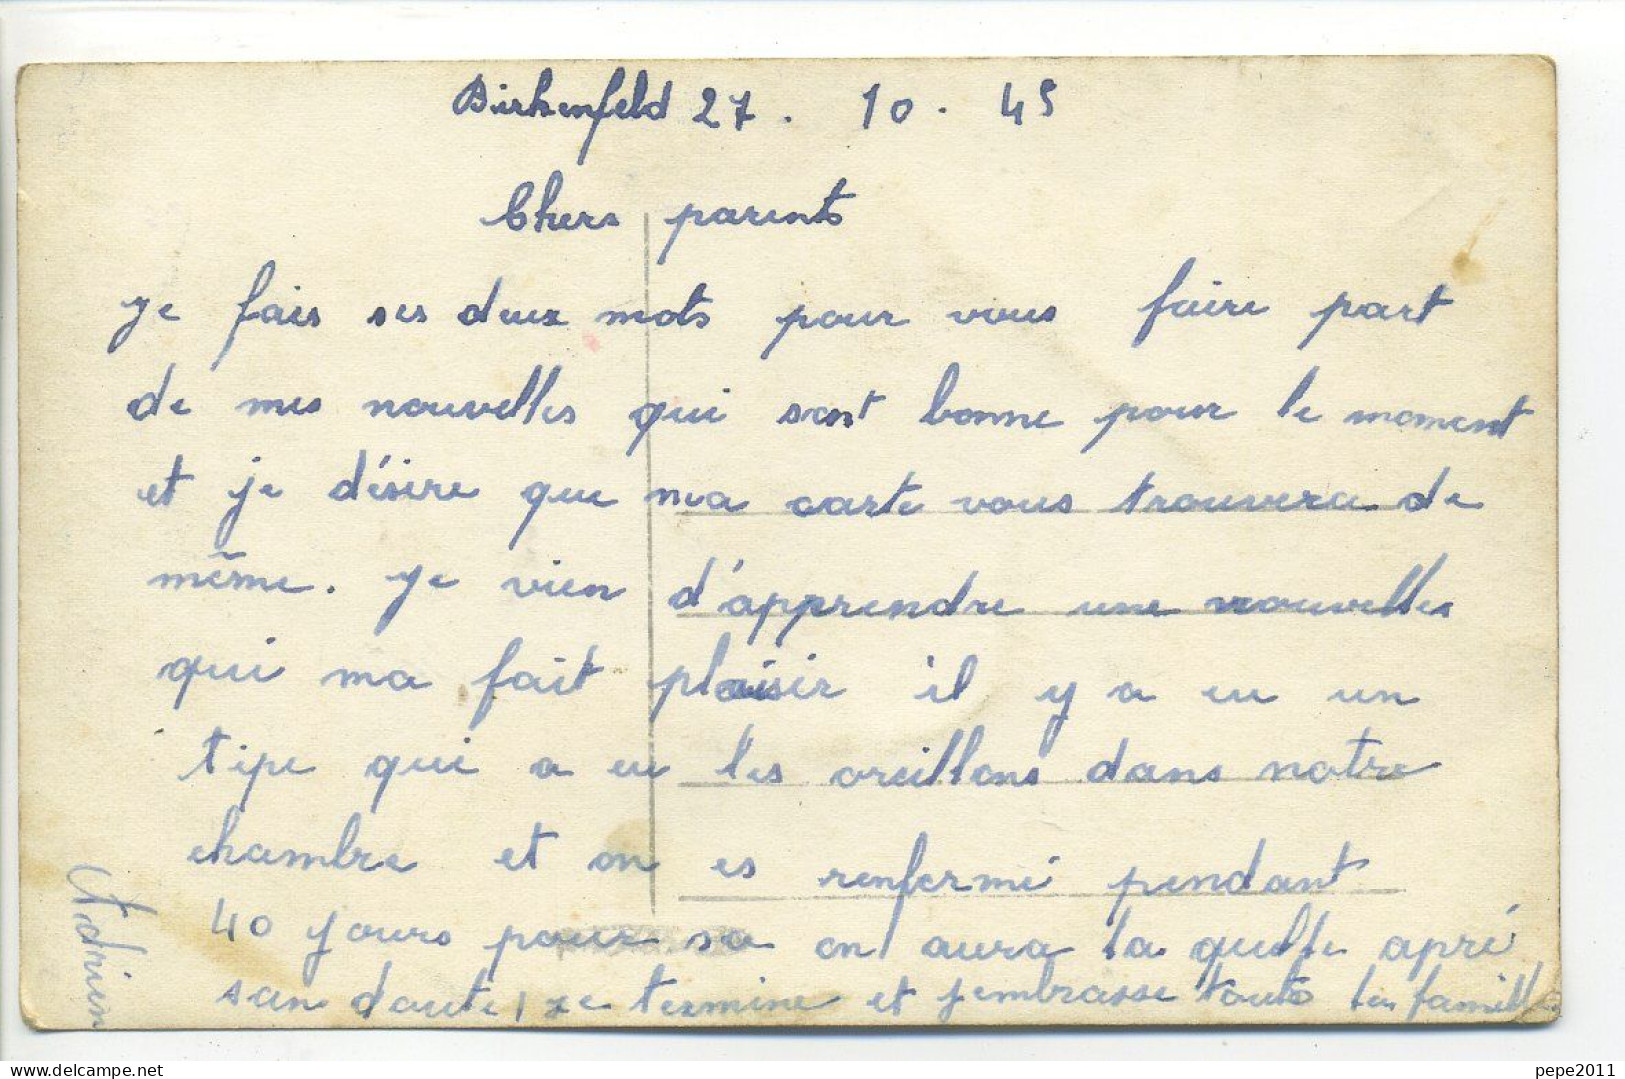 Birkenfeld 27. 10. 45
Chers parents
je fais ses deux mots pour vous faire part
de mes nouvelles qui sont bonne pour le moment
et je désire que ma carte vous trouvera de
même. je vien d'apprendre une nouvelles
qui ma fait plaisir il y a eu un
tipe qui a eu les oreillons dans notre
chambre et on es renfermé pendant
40 jours pour sa on aura la quille apré
san doute, je termine et j'embrasse touts la famille
Adrien
pepe2011
delcampe.net